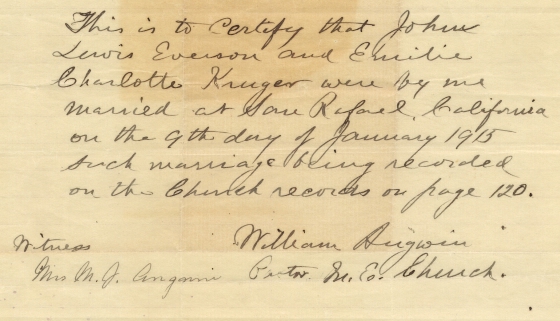 This is to certify that John
Lewis Everson and Emilie
Charlotte Kruger were by me
married at San Rafael, California
on the 9th day of January 1915
such marriage being recorded
on the Church records on page 120.
William Angwin
Witness
Mrs M. J. Angwin
Pastor M. E. Church.